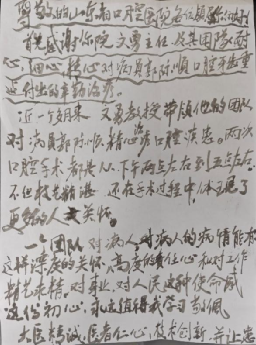 尊敬的山东省口腔医院各位领导
首先感谢你院文勇主任及其团队耐
心、细心、精心对病员郭际顺口腔牙齿重
近一个月来 文勇教授带领他的团队
对病员郭际顺精心治口腔疾患。两次
口腔手术都是从下午两点左右到五点左右
不但技艺精湛 还在手术过程中,体现了
更多的人文关怀。
一个团队对病人,对病人的病情能有
这样深度的关怀,高度的责任心和对工作
精艺求精,对事业,对人民这种使命感
这份初心,永远值得我学习、敬佩
大医精诚,医者仁心,技术创新,并让患